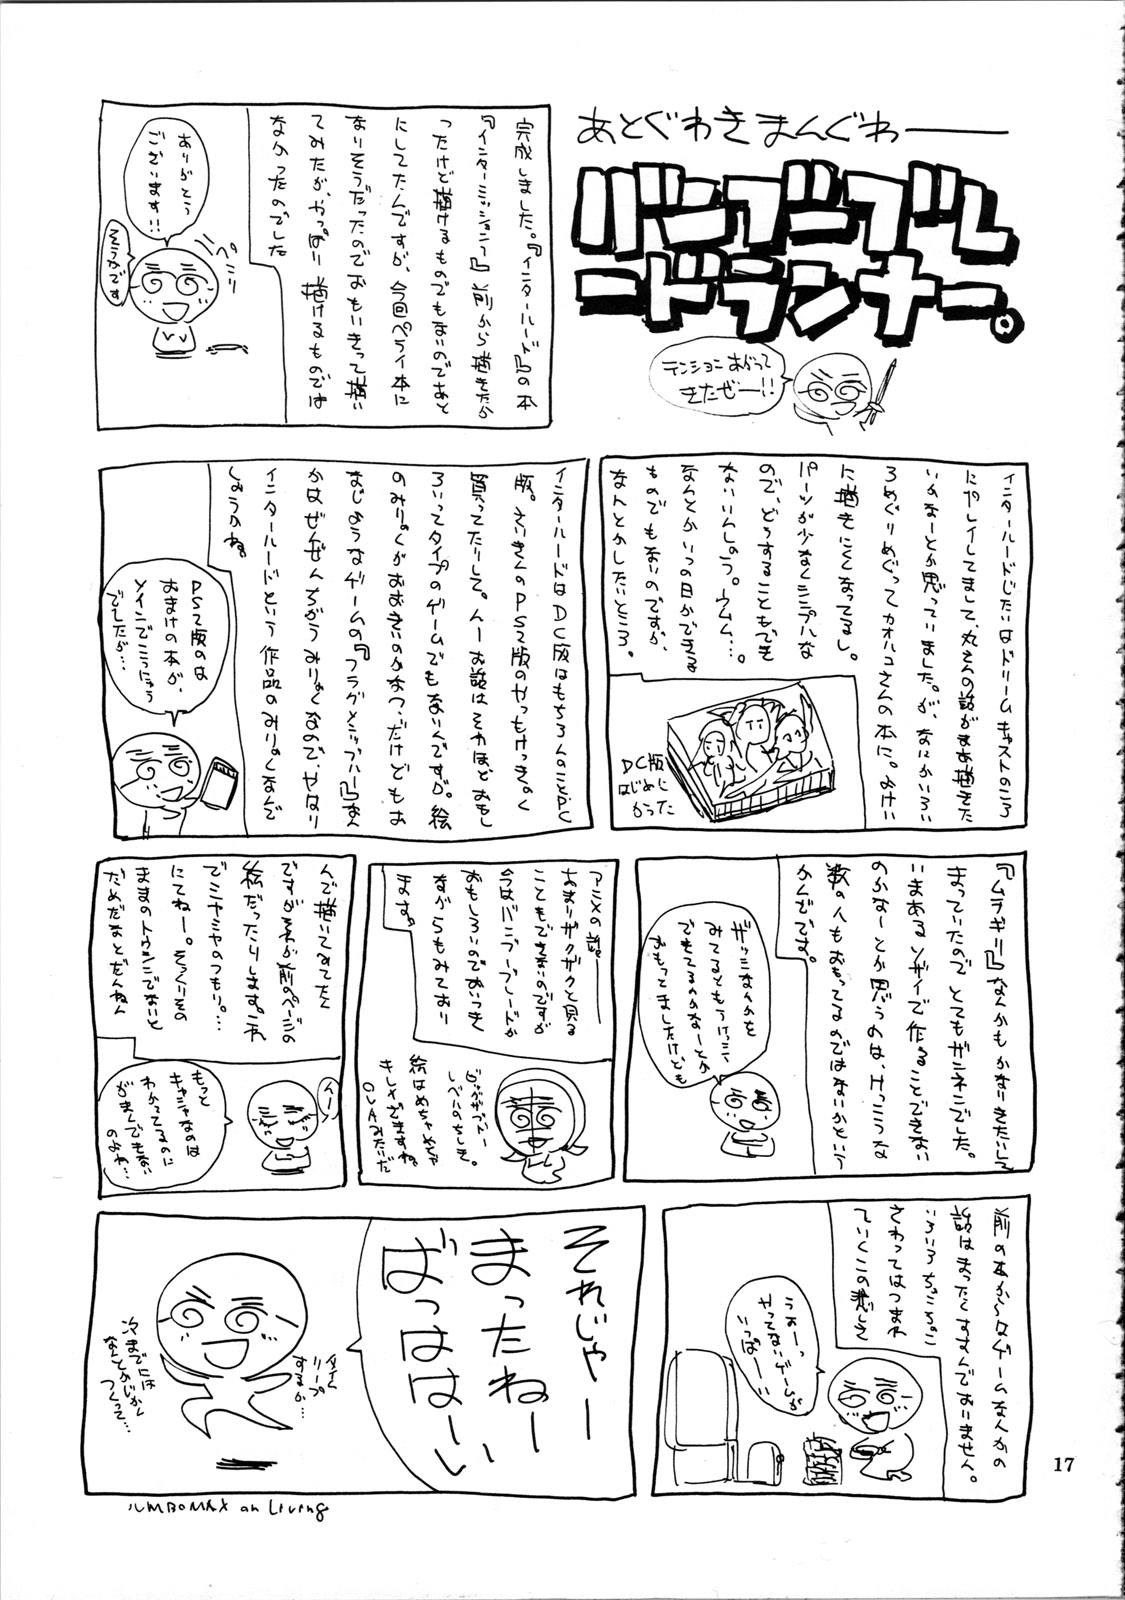 あとぐわきまんぐわー
バンブーブレ
ードランナー。
テンションあがって
きたぜー!!
完成しました。『インタールード』の本
『インターミッション』前から描きたか
ったけど描けるものでもないのであと
にしてたんですが、今回ペライ本に
なりそうだったのでおもいきって描い
てみたが、やっぱり描けるものでは
なかったのでした
ペこり
ありがとう
ございます!!
そうかです
インタールードじたいはドリームキャストのころ
にプレイしてまして、丸さんの話がまあ描きた
いかなーとか思っていました。が、なにかいろい
ろめぐりめぐってカオルコさんの本に。
に描きにくくなってるし。
パーツが少なくシンプルな
ので、どうすることもでき
ないいんしょう。ウムム…。
なんとかいつの日かできる
ものでもないのですが、
なんとかしたいところ。
DC版
はじめに
かうた
インタールードはDC版はもちろんのことPC
版。さいきんのPS2版のやつもけっきょく
買ってたりして。んー お話はそれほどおもし
ろいってタイプのゲームでもないんですが。絵
のみりょくがおおきいのかなっ、だけどもお
なじようなゲームの『フラグとシッフル』なん
かはぜんぜんちがうみりょくなので、やはり
インタールードという作品のみりょくなんで
しょうかね。
PS2版のは
おまけの本が、
メインでこうにゅう
でしたが…
『ムラギリ』なんかもかなりきたいして
まっていたので とてもザンネンでした。
いまあるソザイで作ることできない
のかなーとか思うのは、けっこうな
数の人もおもってるのではないかという
かんじです。
ザッシなんかを
みてるともうけっこう
できてるんかなーとか
おもってましたけども
アニメの話ー
あまりザクザクと見る
こともできないのですが
今はバンブーブレードが
おもしろいのでおいつき
ながらもみており
ます。
レベルのちしき。
絵はめちゃめちゃ
きレイですね。
OVAみたいだ
んで描いてみてたん
ですがそれが前のページの
絵だったりします。これ
でミヤミヤのつもり。…
にてねー。そっくりその
ままのトウシンでないと
だめだなとざんねん
んー
もっと
キャシャなのは
わかってるのに
がまんできない
のよね…
前の本からはゲームなんかの
話はまったくすすんでおりません。
いろいろちょこちょこ
さわってはつまれ
ていくこの悲しさ
うおーっ
やってないゲームが
いっぱーい
それじゃー
まったねー
ばっははーい
タイム
リープ
するか…
次までには
なんとかじかん
つくって…
ルMBOMAX an Living
17